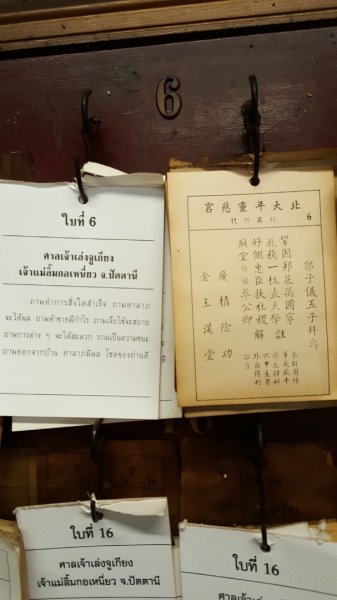 6
ใบที่ 6
ศาลเจ้าเล่งจูเกียง
เจ้าแม่ลิ้มกอเหนี่ยว จ.ปัตตานี
ถามทำการสิ่งใดสำเร็จ ถามหาลาภ
จะได้ผล ถามค้าขายมีกำไร ถามเจ็บไข้จะสบาย
ถามการต่าง ๆ จะได้สะดวก ถามเป็นความชนะ
ถามออกจากบ้าน หาลาภมีผล โชคของท่านดี
北大年靈慈宮
第六號
6
郭子儀五子拜壽
鞏固邦基萬國寧
一柱直擎天
好個忠臣扶社稷
廟堂
註解
廣積陰功
金玉滿堂
16
16
ใบที่ 16
ศาลเจ้าเล่งจูเกียง
เจ้าแม่ลิ้มกอเหนี่ยว จ.ปัตตานี
ใบที่ 16
ศาลเจ้าเล่งจูเกียง
เจ้าแม่ลิ้มกอเหนี่ยว จ.ปัตตานี